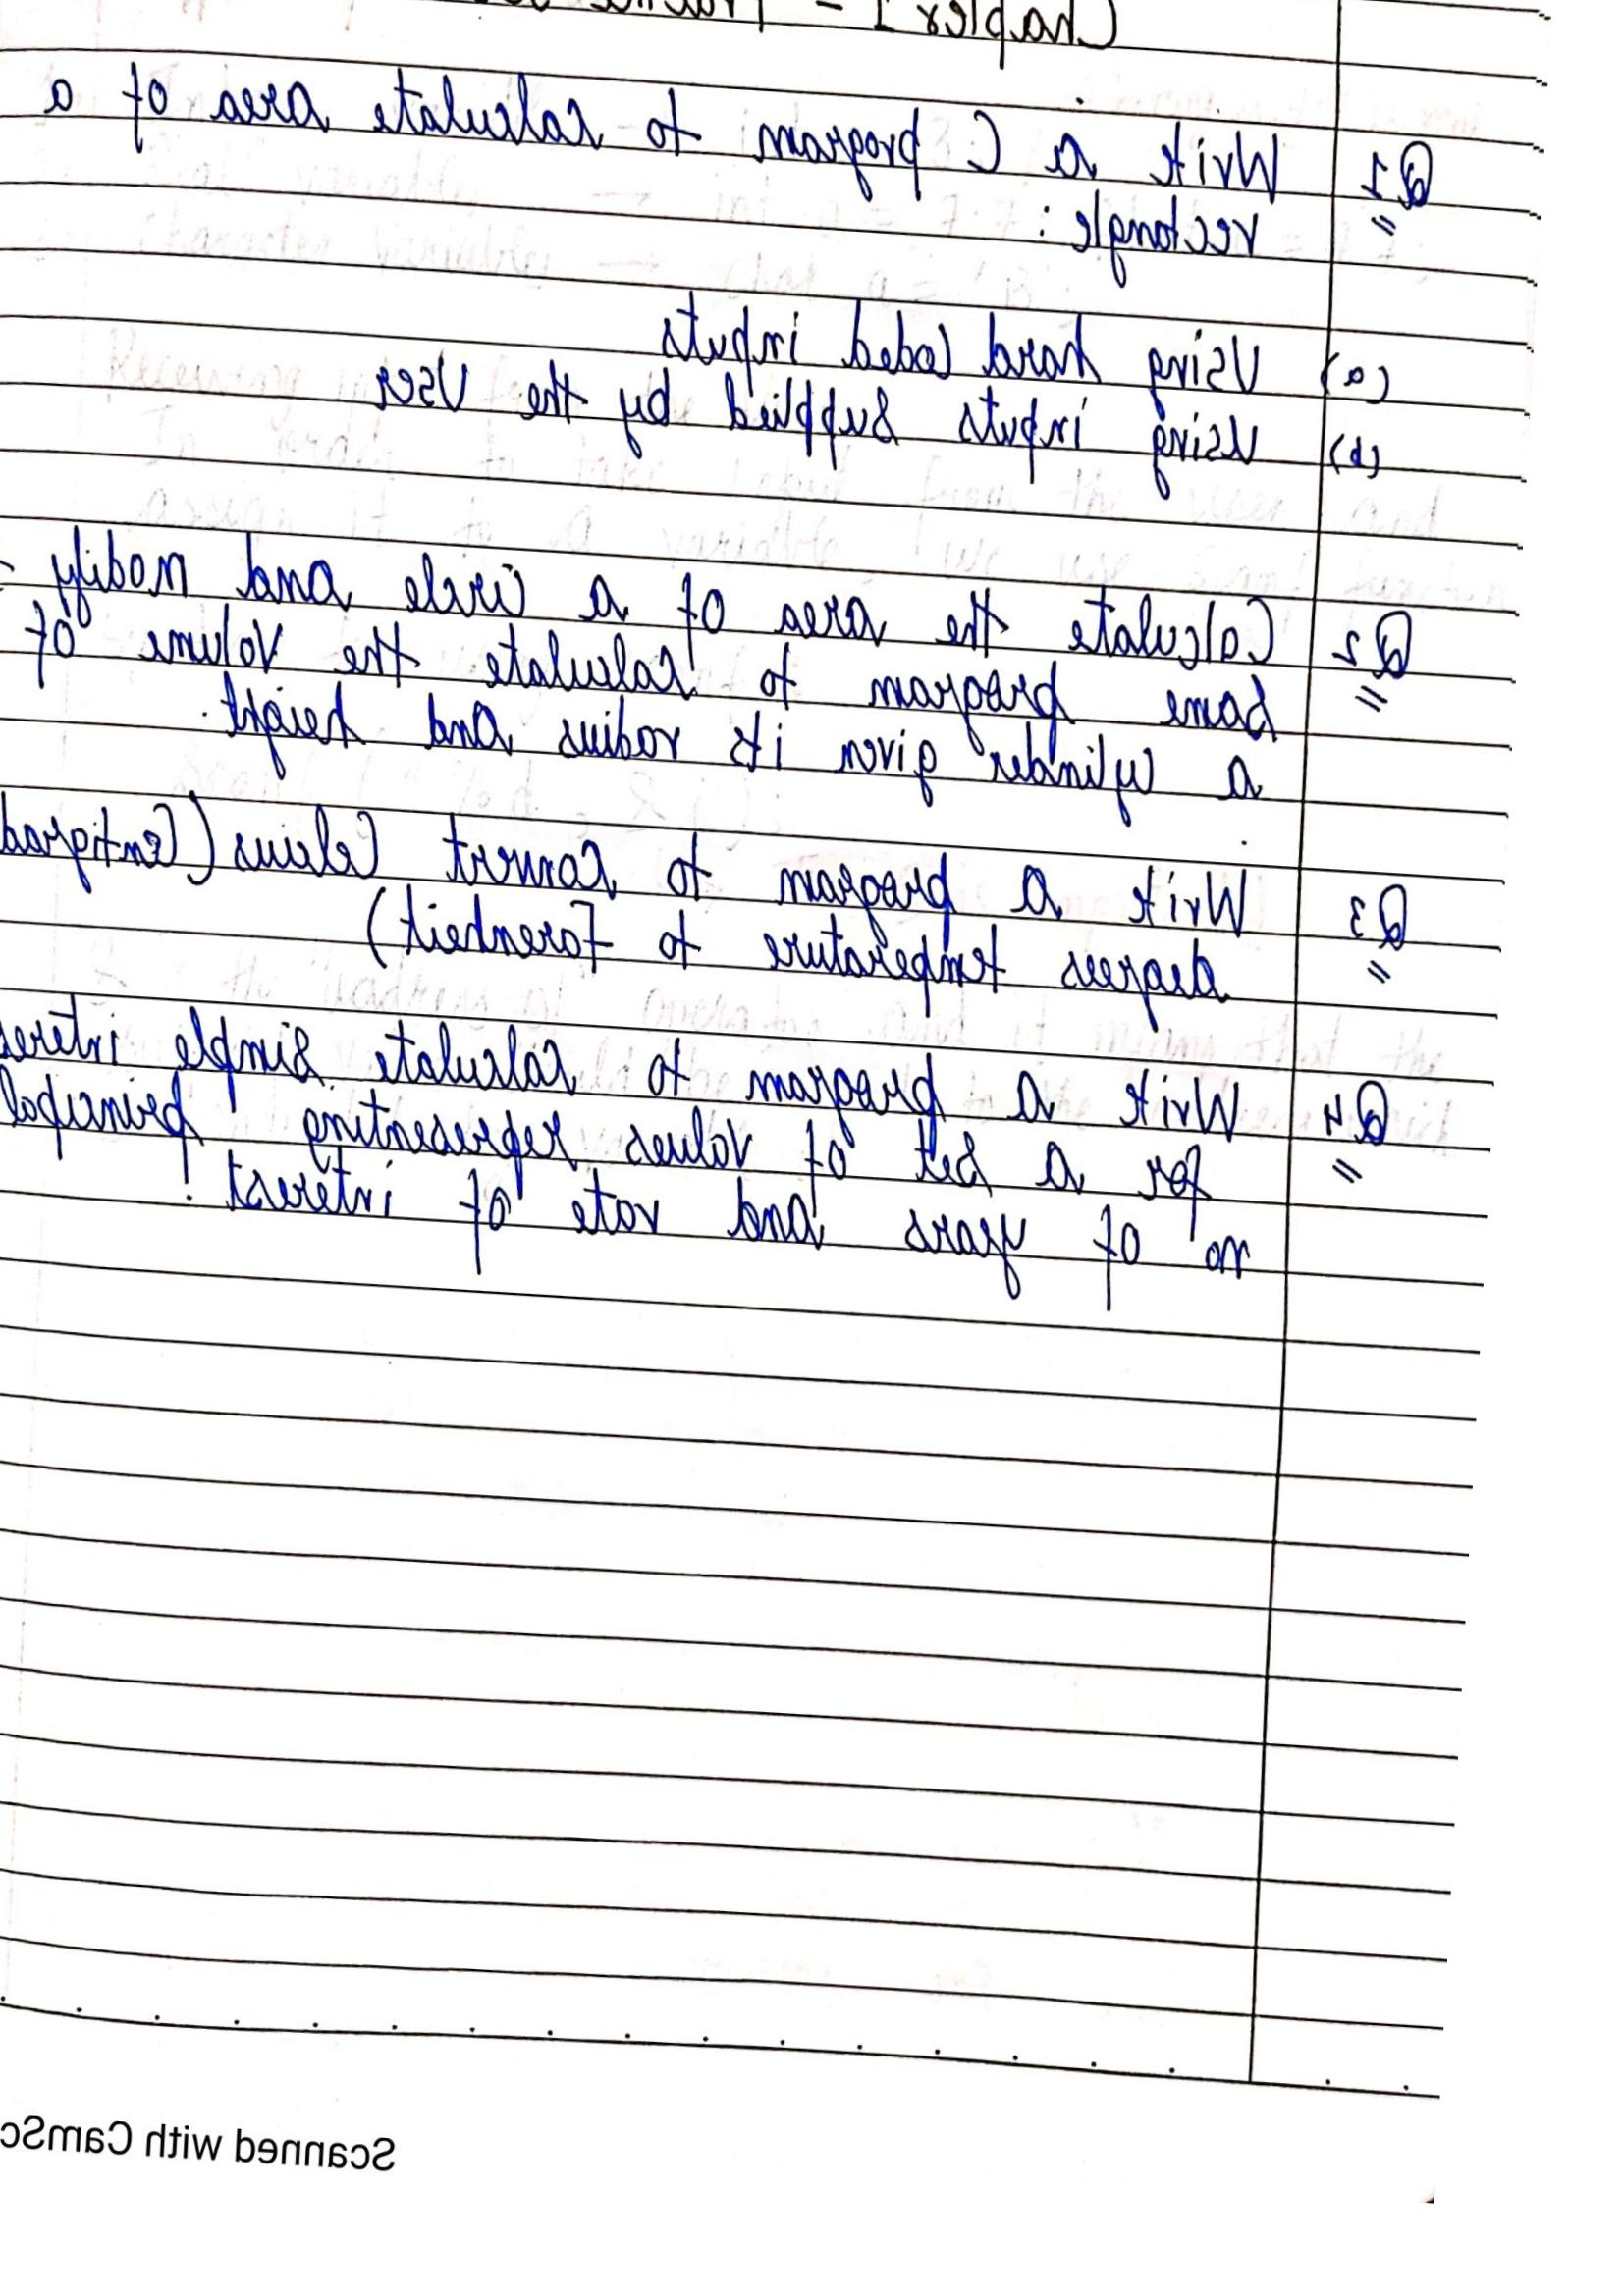 Chapter 1 - Practice
Q1 Write a C program to calculate area of a
rectangle:
(a) Using hard Coded inputs
(b) Using inputs Supplied by the User
Q2 Calculate the area of a Circle and modify
Same program to calculate the Volume of
a Cylinder given its radius and height.
Q3 Write a program to Convert Celcius (Centigrad
degrees temperature to Farenheit)
Q4 Write a program to calculate Simple interes
for a Set of values representing principal
no of years and rate of interest!
Scanned with CamSc